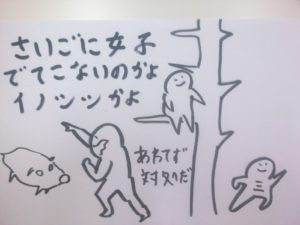 さいごに女子
でてこないのかよ
イノシシかよ
あわてず
対処だ